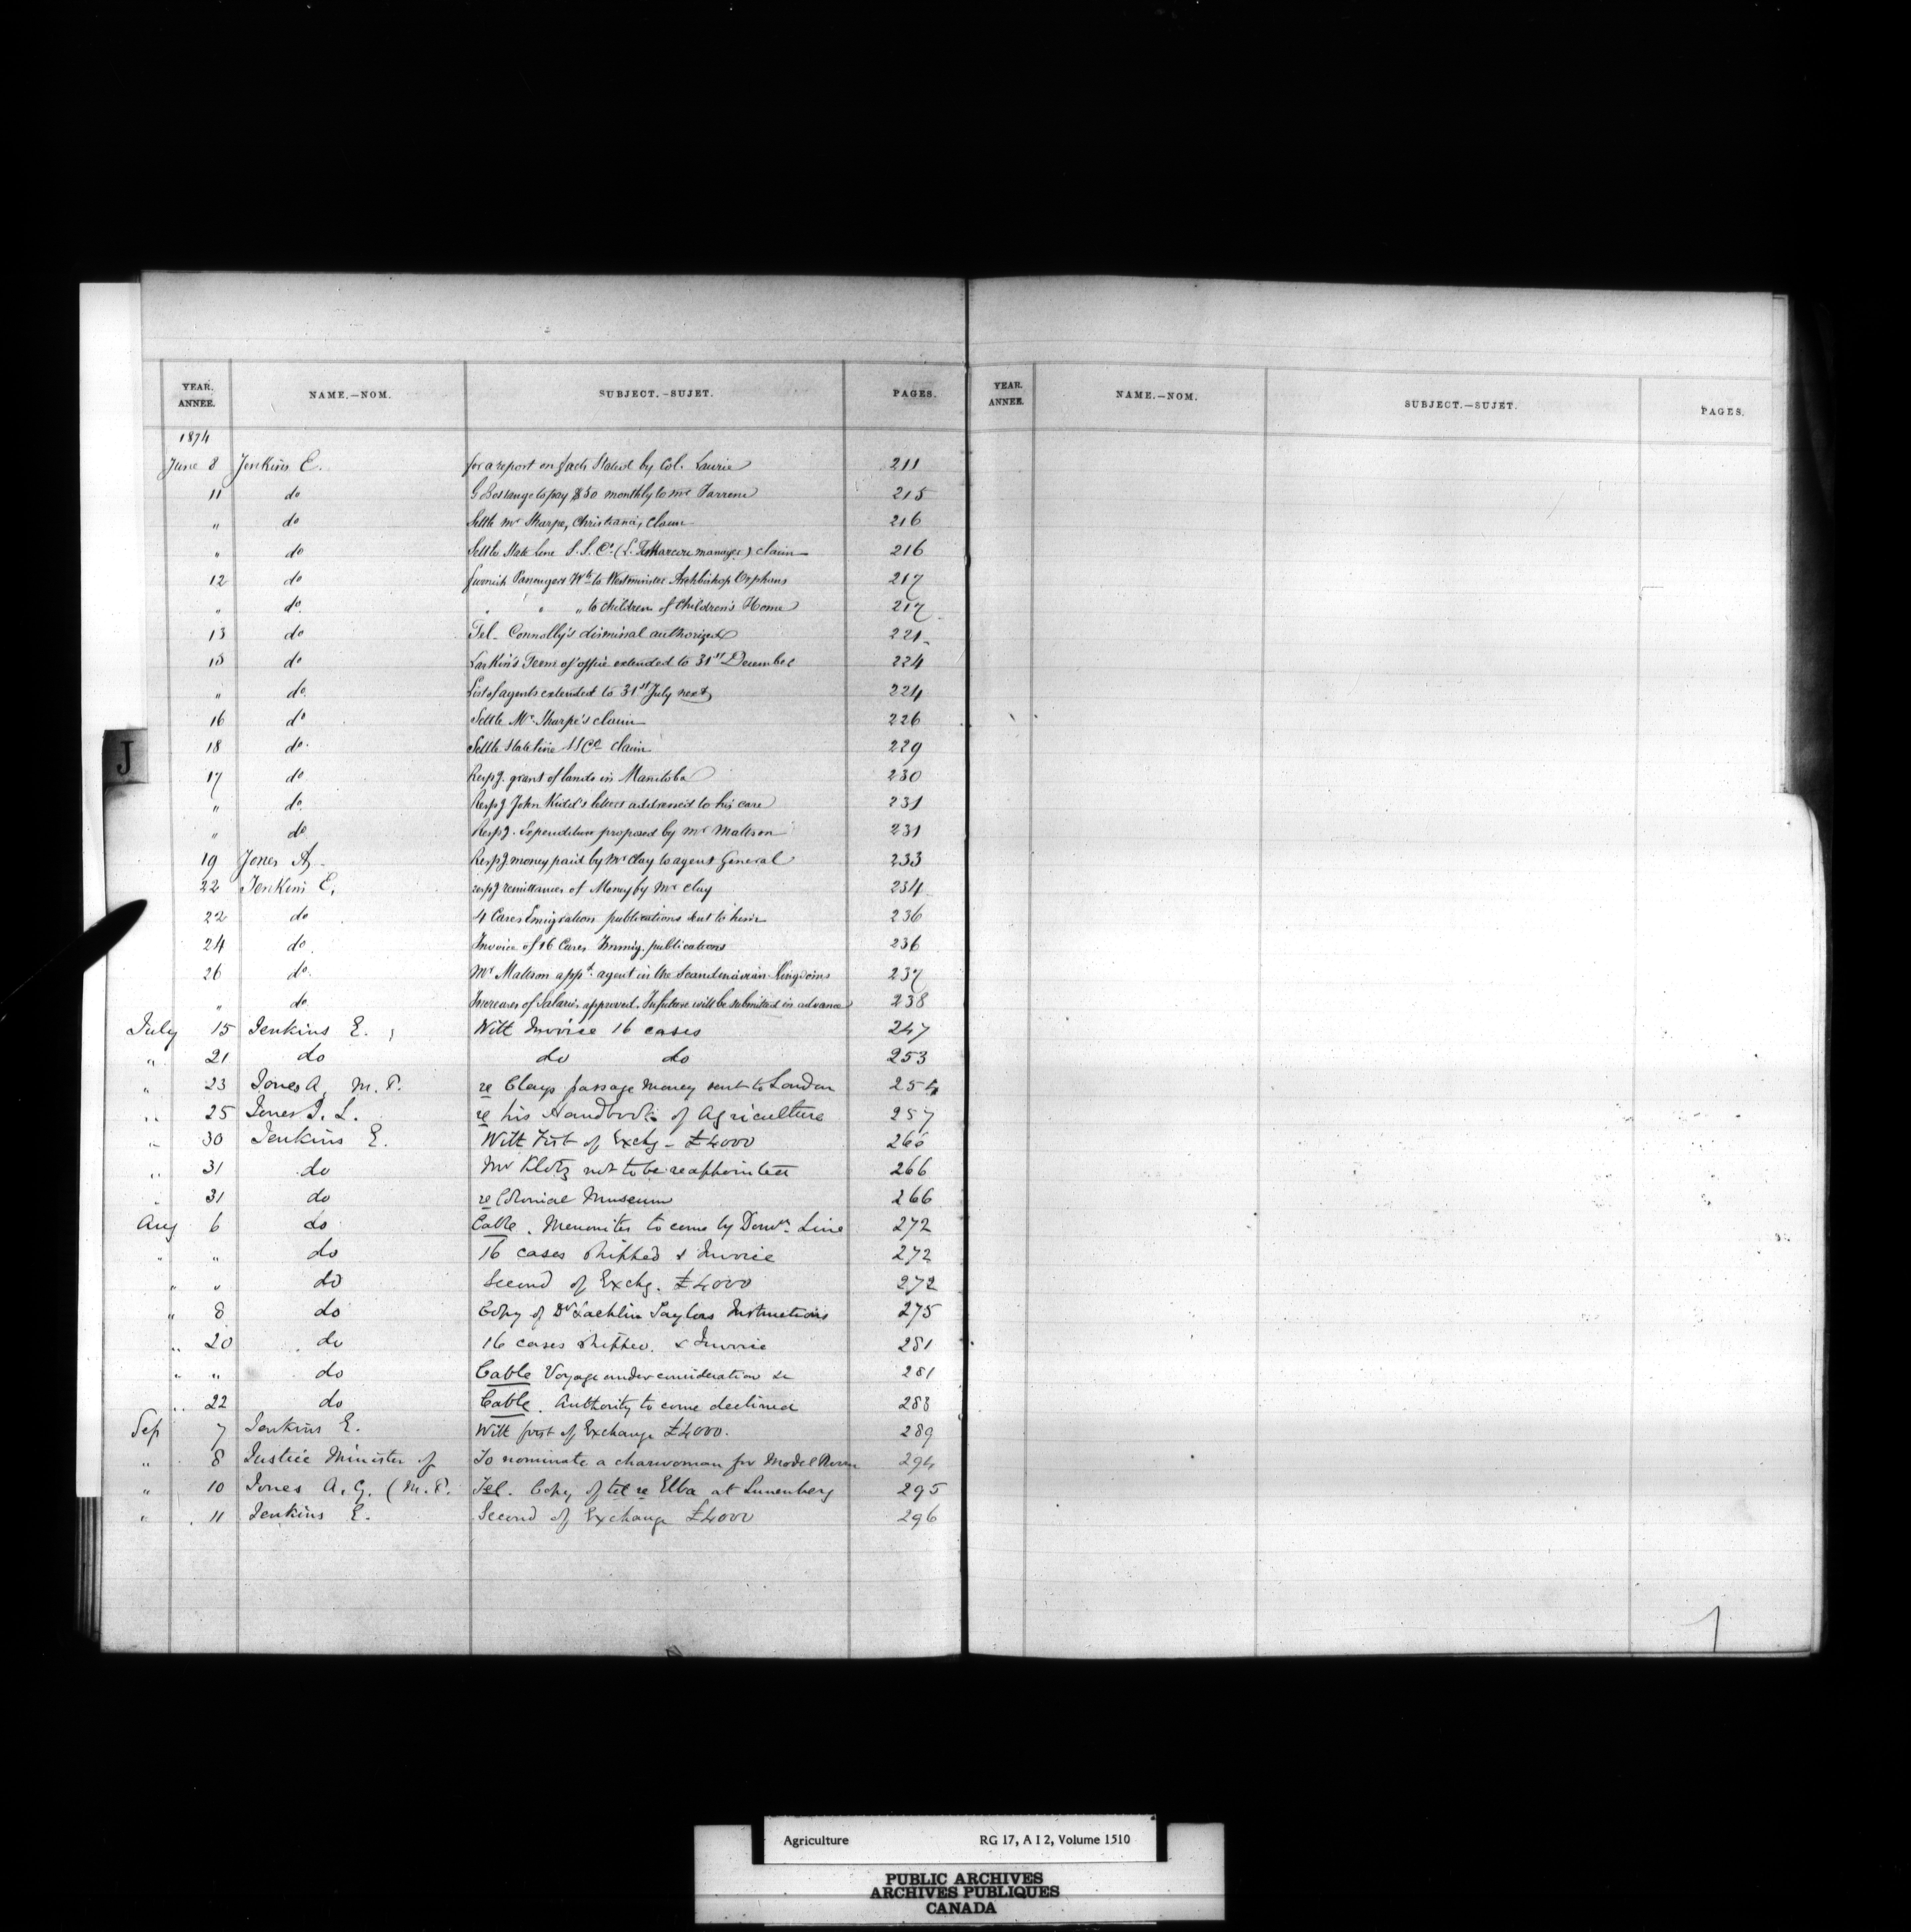 YEAR. ANNEE. NAME.—NOM. SUBJECT.—SUJET. PAGES.
YEAR. ANNEE. NAME.—NOM. SUBJECT.—SUJET. PAGES.
1874
June 8 Jenkins E. for a report on facts stated by Col. Laurie 211
11 do to pay $50 monthly to Mr 215
" do Settle Mr Sharpe, Christiania, claim 216
" do Settle State Line S.S. Co. (L. manager) claim 216
12 do furnish Passenger Wts to Westminster Archbishop Orphans 217
" do. " " " to children of Children's Home 217
13 do Tel. Connolly's dismissal authorized 221
15 do Larkin's Term of office extended to 31st December 224
" do. List of agents extended to 31st July next 224
16 do Settle Mr Sharpe's claim 226
18 do. Settle State Line SS Co claim 229
17 do Respg. grant of lands in Manitoba 230
" do. Respg John Kidd's letters addressed to his care 231
" do Respg. Expenditure proposed by Mr Mattson 231
19 Jones A. Respg money paid by Mr Clay to agent General 233
22 Jenkins E. respg remittances of Money by Mr Clay 234
22 do 4 Cases Emigration publications sent to him 236
24 do. Invoice of 16 Cases Immig. publications 236
26 do. Mr Mattson appd. agent in the Scandinavian Kingdoms 237
" do Increases of Salaries approved. In future will be submitted in advance 238
July 15 Jenkins E. With Invoice 16 cases 247
" 21 do do do 253
" 23 Jones A, M.P. re Clays passage money sent to London 254
" 25 Jones I. L. re his Handbook of Agriculture 257
" 30 Jenkins E. With First of Exchg - £4000 266
" 31 do Mr Klotz not to be reappointed 266
" 31 do re Colonial Museum 266
Aug 6 do Cable. Menonites to come by Domn. Line 272
" " do 16 cases shipped & Invoice 272
" " do Second of Exchg. £4000 272
" 8 do Copy of Dr Lachlin Taylors Instructions 275
" 20 do 16 cases shipped. & Invoice 281
" " do Cable Voyage under consideration &c 281
" 22 do Cable. Authority to come declined 283
Sep 7 Jenkins E. With first of Exchange £4000. 289
" 8 Justice Minister of To nominate a charwoman for Model Room 294
" 10 Jones A. G. (M.P. Tel. Copy of tel re Elba at Lunenberg 295
" 11 Jenkins E. Second of Exchange £4000 296
J
1
Agriculture RG 17, A I 2, Volume 1510
PUBLIC ARCHIVES
ARCHIVES PUBLIQUES
CANADA